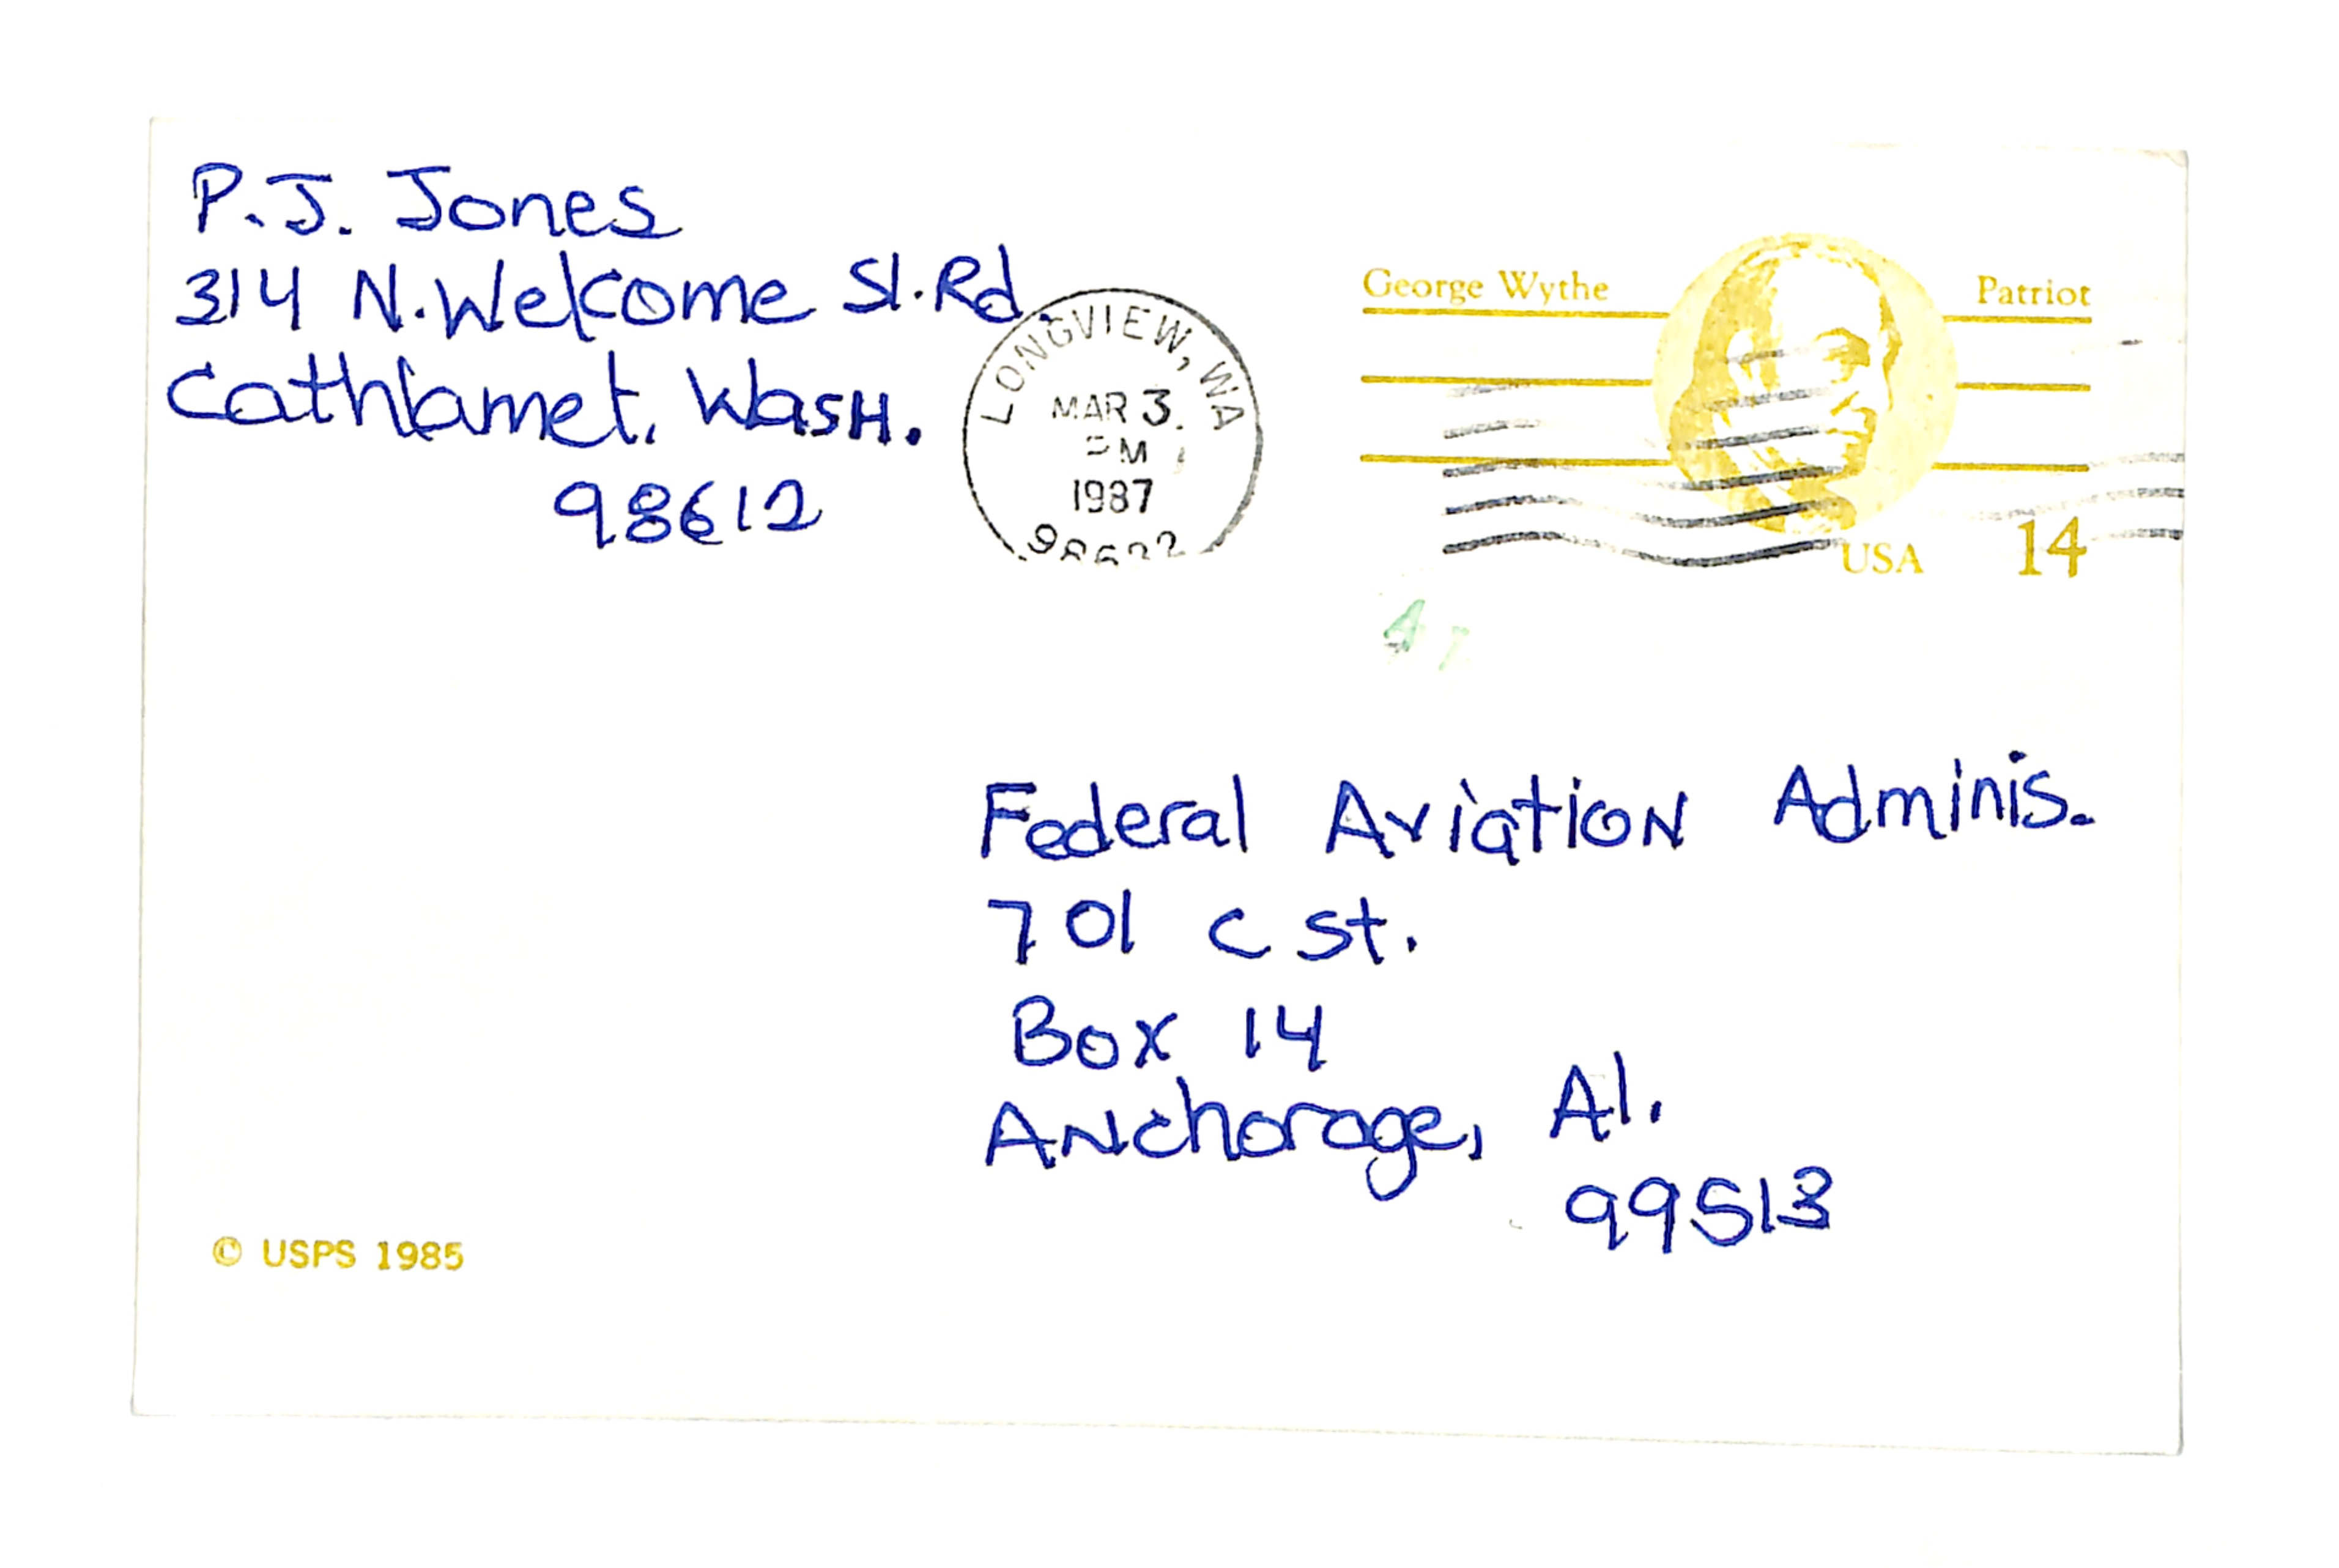 P.J. Jones
314 N. Welcome Sl. Rd
Cathlamet, Wash.
98612
LONGVIEW, WA
MAR 3
PM
1987
George Wythe
Patriot
USA
14
Federal Aviation Adminis.
701 C St.
Box 14
Anchorage, Al.
99513
© USPS 1985